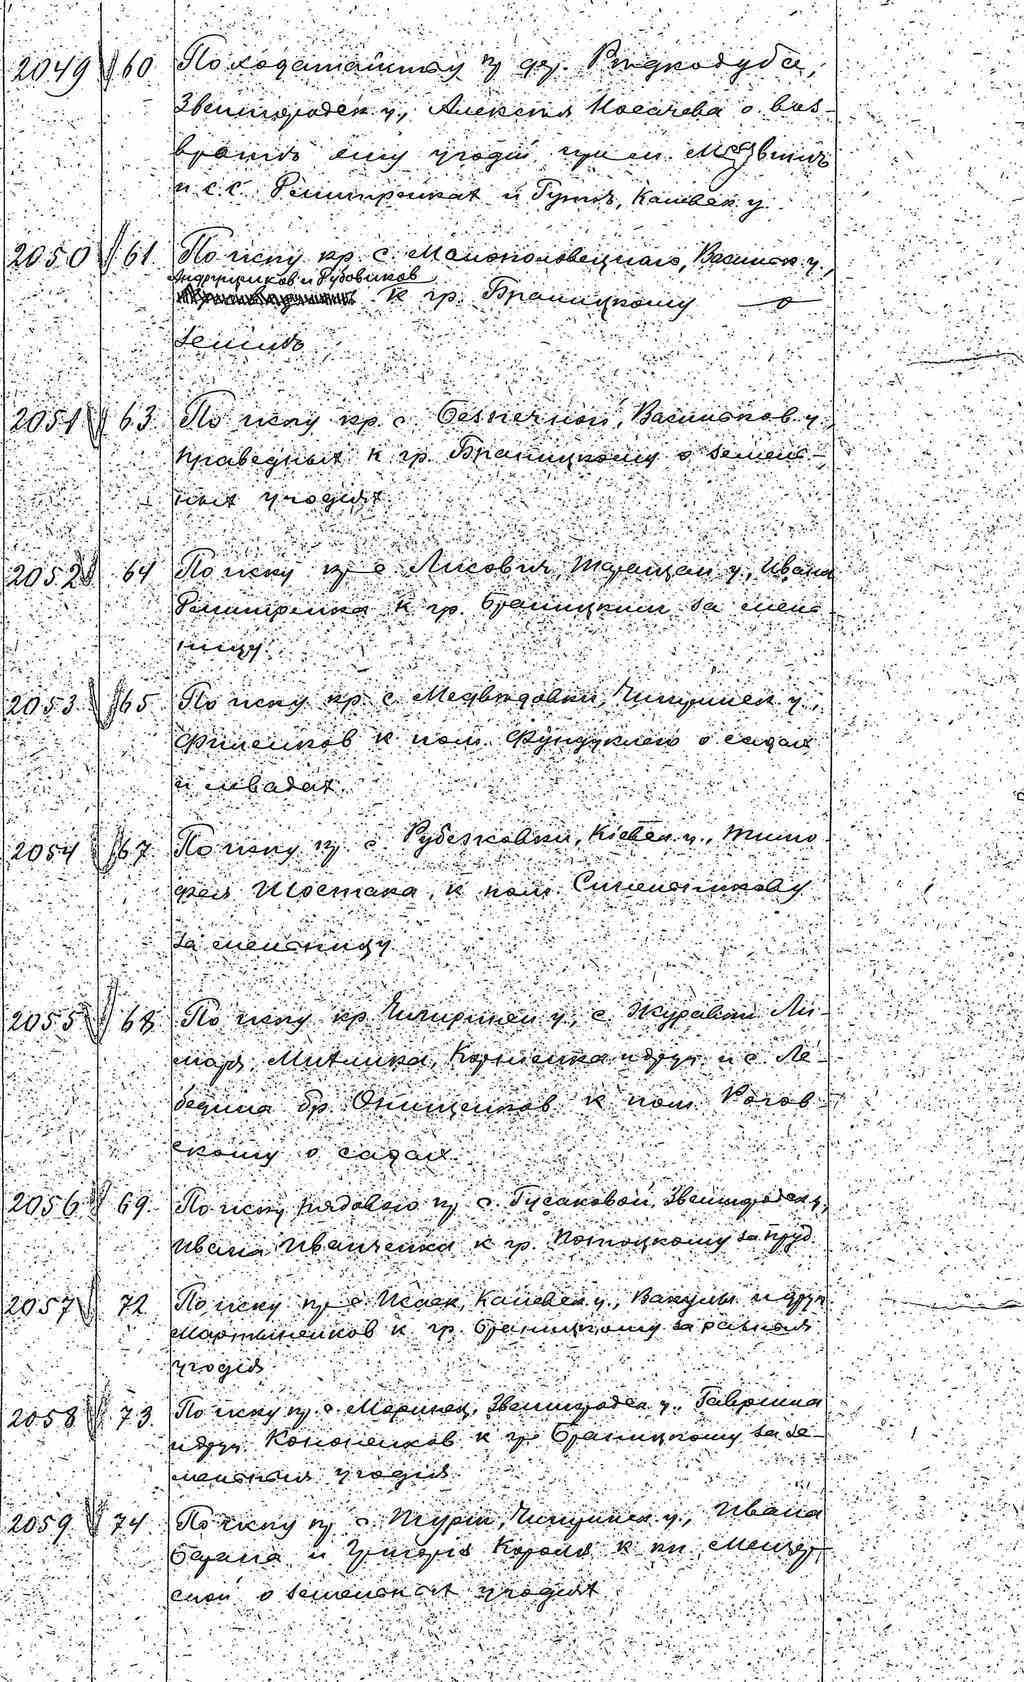 2049 60 По ходатайству кр дер. Редкодуба,
Звенигородск. у., Алексея Носачева о воз-
врате ему угодий при м.
и с.с. и Гуте, Каневск. у.
2050 61. По иску кр. с. Малополовецкаго, Васильк. у.,
Андрущиков и Рубовиков
к гр. Браницкому о
земле
2051 63. По иску кр. с. Безпечной, Васильков. у.,
Праведных к гр. Браницкому о земель-
ных угодиях
2052 64 По иску кр с Лисович, Таращан у., Ивана
к гр. Браницким за мель-
ницу.
2053 65 По иску кр. с Медведовки, Чигиринск у.,
Филенков к пом. Фундуклею о садах
и левадах.
2054 67 По иску кр. с Рубежовки, Киевск. у., Тимо-
фея Шостака, к пом
за мельницу
2055 68 По иску кр Чигиринск у, с Журавки Ли-
маря, Митлика, Корниенка и друг и с Ле-
бедина бр. Онищенков к пом. Рогов-
скому о садах.
2056 69. По иску рядового кр с. Гусаковой, Звенигородск у,
Ивана Иванченка к гр. Потоцкому за пруд.
2057 72 По иску кр с Исаек, Каневск у., Вакулы и друг
Мартыненков к гр. Браницкому за разныя
угодия.
2058 73. По иску кр. с. Моринец, Звенигородск у., Гавриила
и друг. Кононенков к гр Браницкому за зе-
мельныя угодия
2059 74 По иску кр с. Чигиринск у., Ивана
Барана и Григория Короля к кн. Мещер-
ской о земельных угодиях